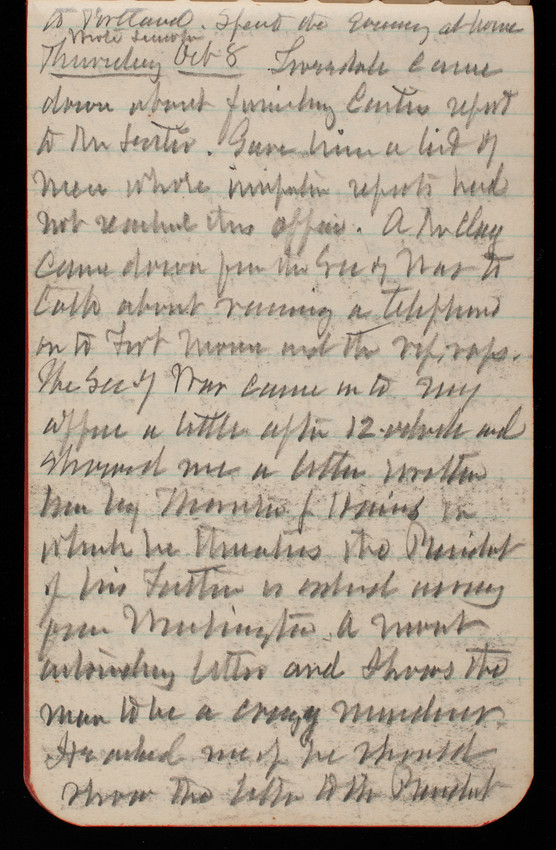 to Portland. Spent the Evening at home
Wrote
Thursday Oct 8 came
down about Centers report
to the. Gave him a list of
men whose reports had
not reached this office. A Mr Clay
came down from the Sec of War to
talk about running a telephone
on to Fort Monroe and the rip raps.
The Sec of War came in to my
office a little after 12 oclock and
showed me a letter written
him by Thornton J Hains in
which he threatens the President
if his Father is ordered away
from Washington. A most
astounding letter and shows the
man to be a crazy murderer.
He asked me if he should
show the letter to the President